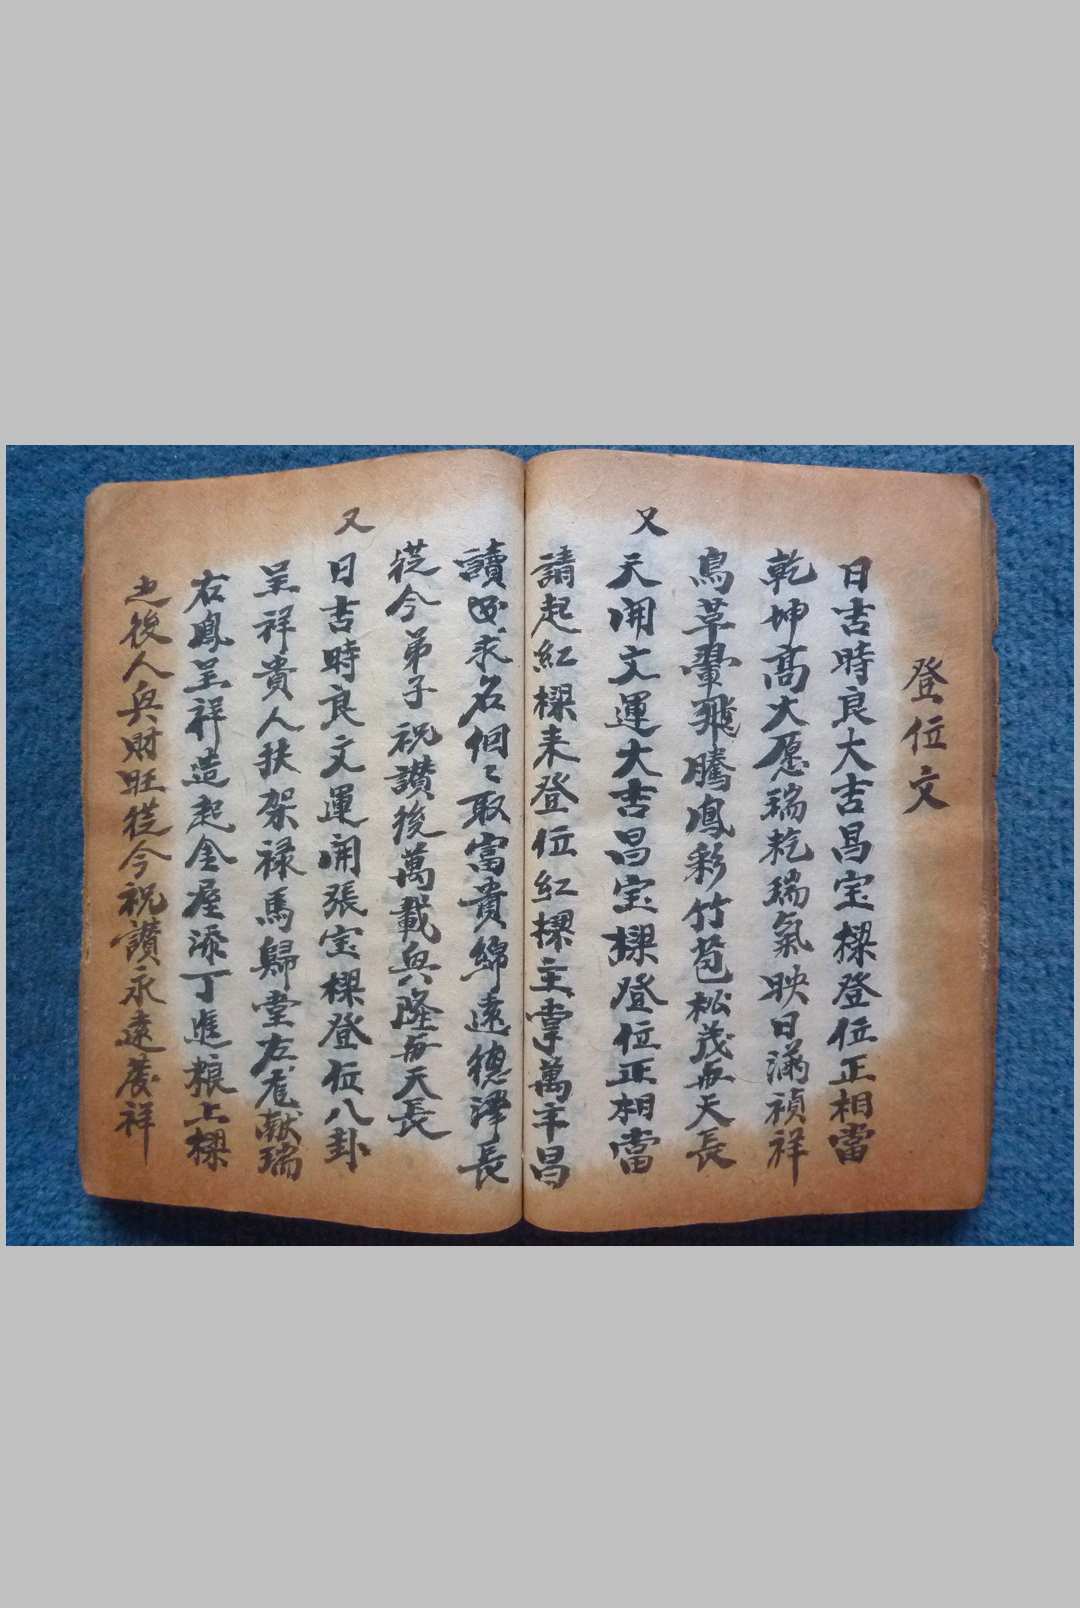 登位文
日吉時良大吉昌宝樑登位正相當
乾坤高大愿瑞乾瑞氣映日滿禎祥
鳥草翬飛騰鳳彩竹苞松茂每天長
又 天開文運大吉昌宝樑登位正相當
請起紅樑来登位紅樑主掌萬年昌
讀 求名個〻取富貴綿遠德澤長
從今弟子祝讃後萬載興隆每天長
又 日吉時良文運開張宝樑登位八卦
呈祥貴人扶架禄馬歸堂左 献瑞
右鳳呈祥造起金屋添丁進粮上樑
之後人興財旺從今祝讃永遠發祥